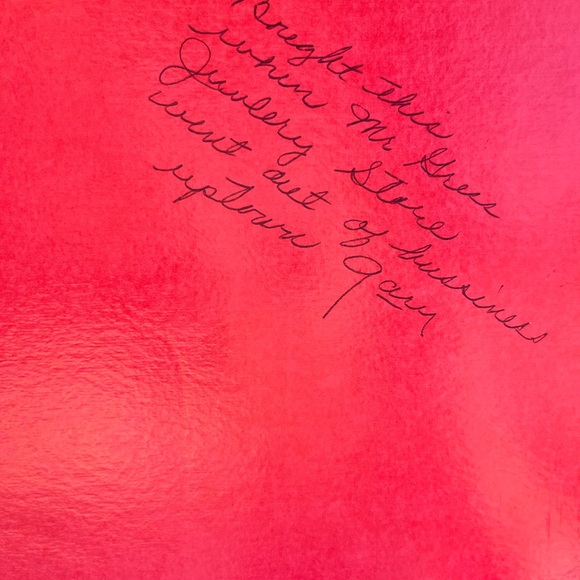 Bought this
when Mr Gress
Juwlery Store
went out of bussiness
uptown Gary